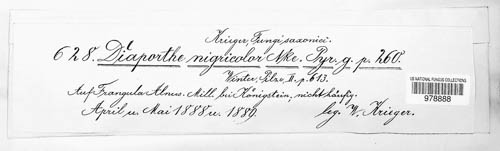 Krieger, Fungi saxonici.
628. Diaporthe nigricolor Nke. Pyr. g. p. 260.
Winter, Pilze, II. p. 613.
Auf Frangula Alnus Mill. bei Königstein, nicht häufig.
April u. Mai 1888 u. 1889. leg. W. Krieger.
US NATIONAL FUNGUS COLLECTIONS
978888